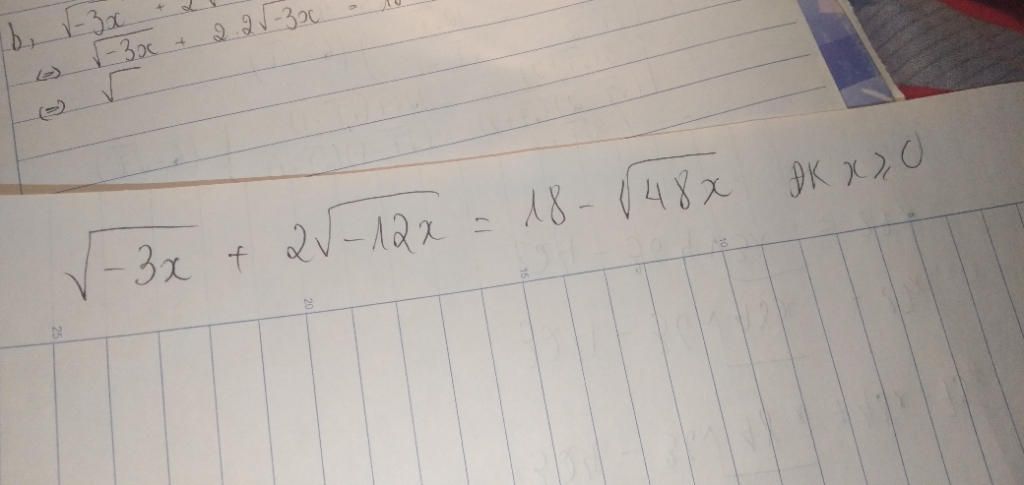 b, √-3x + 2√
(=) √-3x + 2.2√-3x = 18
(=) √
√-3x + 2√-12x = 18 - √48x ĐK x ≥ 0
25 20 15 10